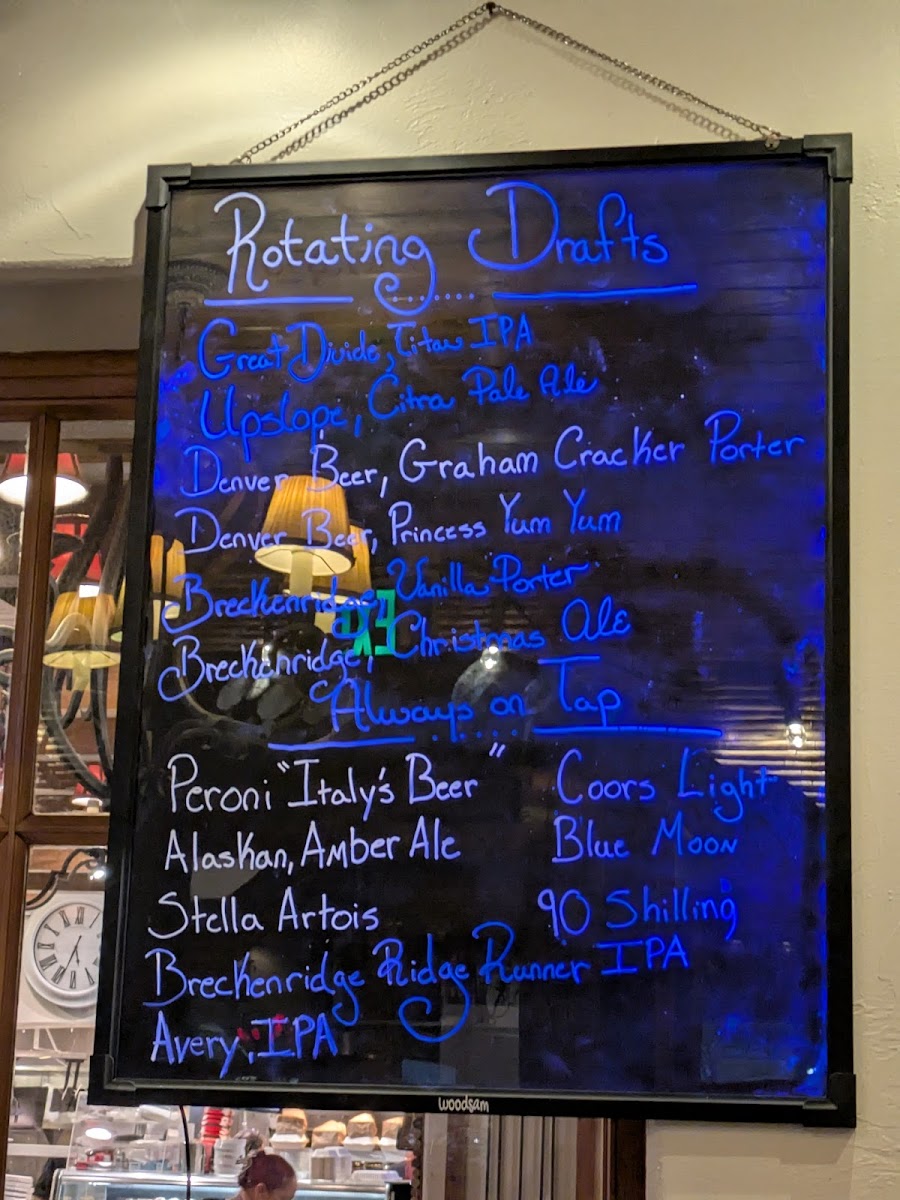 Rotating Drafts
Great Divide, Titan IPA
Upslope, Citra Pale Ale
Denver Beer, Graham Cracker Porter
Denver Beer, Princess Yum Yum
Breckenridge, Vanilla Porter
Breckenridge, Christmas Ale
Always on Tap
Peroni "Italy's Beer" Coors Light
Alaskan, Amber Ale Blue Moon
Stella Artois 90 Shilling
Breckenridge Ridge Runner IPA
Avery, IPA
woodsam